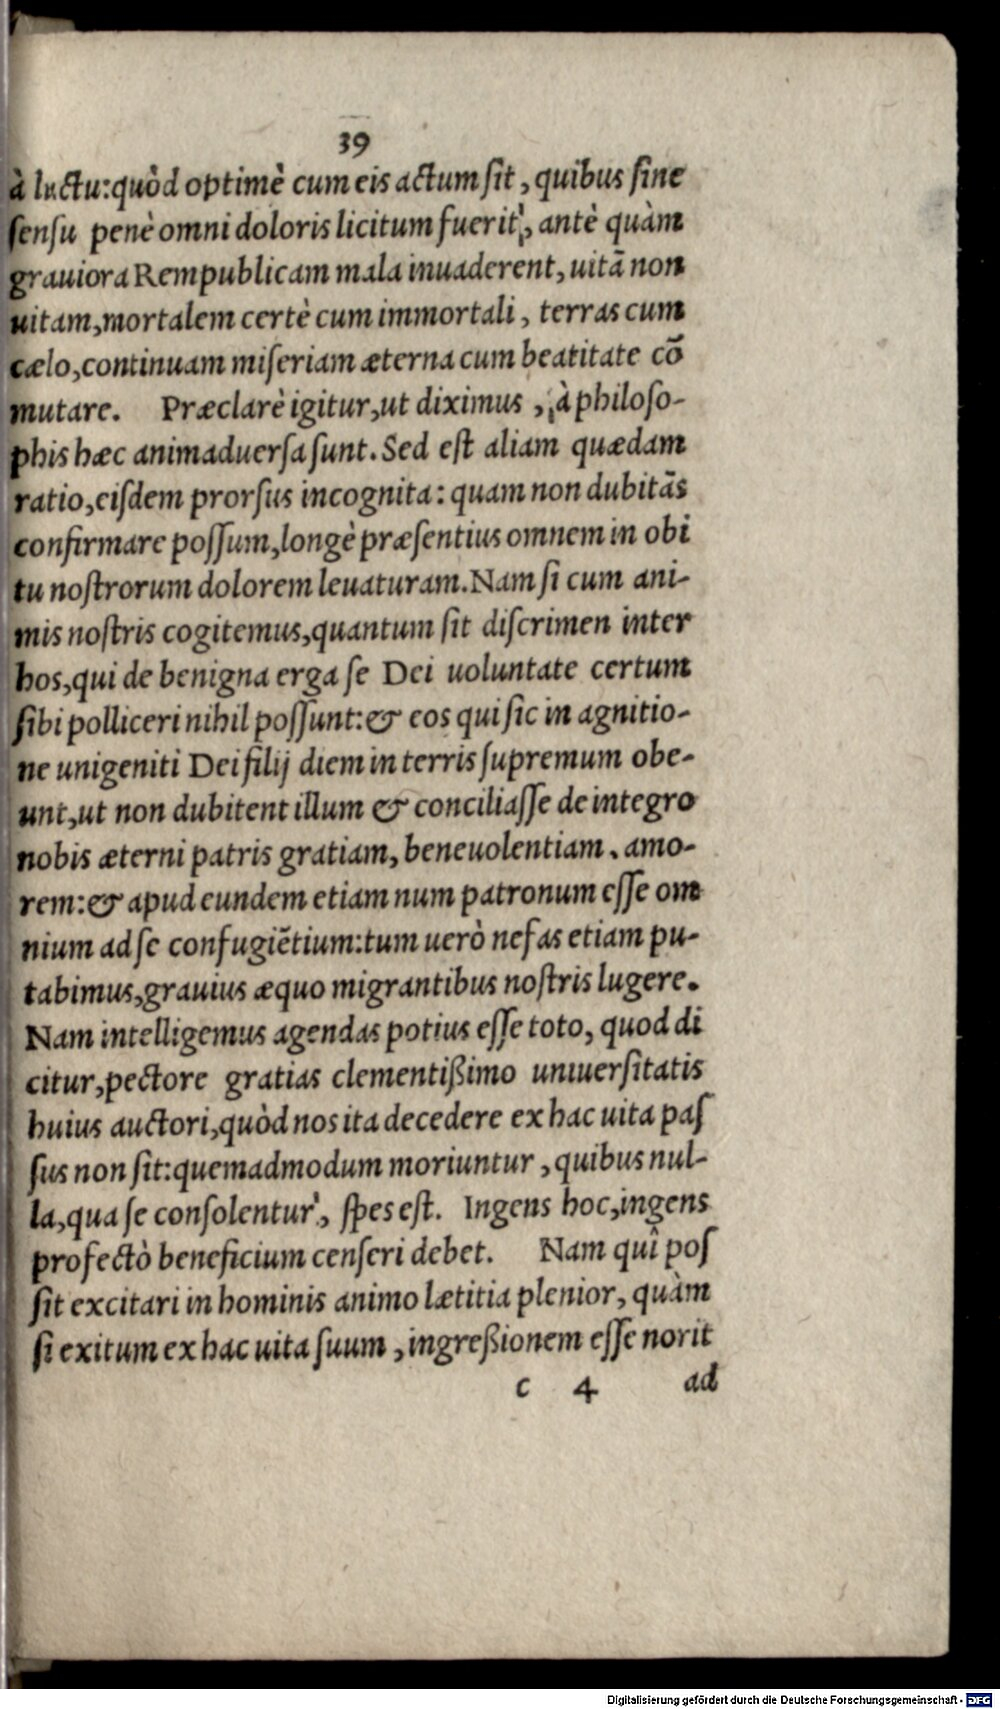 39
à luctu: quòd optimè cum eis actum sit, quibus sine
sensu penè omni doloris licitum fuerit, antè quàm
grauiora Rempublicam mala inuaderent, uitã non
uitam, mortalem certè cum immortali, terras cum
cælo, continuam miseriam æterna cum beatitate cõ
mutare. Præclarè igitur, ut diximus, à philoso-
phis hæc animaduersa sunt. Sed est aliam quædam
ratio, eisdem prorsus incognita: quam non dubitãs
confirmare possum, longè præsentius omnem in obi
tu nostrorum dolorem leuaturam. Nam si cum ani-
mis nostris cogitemus, quantum sit discrimen inter
hos, qui de benigna erga se Dei uoluntate certum
sibi polliceri nihil possunt: & eos qui sic in agnitio-
ne unigeniti Dei filij diem in terris supremum obe-
unt, ut non dubitent illum & conciliasse de integro
nobis æterni patris gratiam, beneuolentiam, amo-
rem: & apud eundem etiam num patronum esse om
nium ad se confugiẽtium: tum uerò nefas etiam pu-
tabimus, grauius æquo migrantibus nostris lugere.
Nam intelligemus agendas potius esse toto, quod di
citur, pectore gratias clementißimo uniuersitatis
huius auctori, quòd nos ita decedere ex hac uita pas
sus non sit: quemadmodum moriuntur, quibus nul-
la, qua se consolentur, spes est. Ingens hoc, ingens
profectò beneficium censeri debet. Nam quî pos
sit excitari in hominis animo lætitia plenior, quàm
si exitum ex hac uita suum, ingreßionem esse norit
c 4 ad
Digitalisierung gefördert durch die Deutsche Forschungsgemeinschaft - DFG